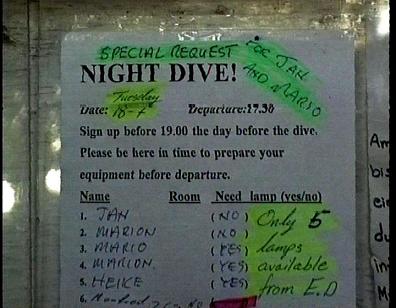 SPECIAL REQUEST FOR JAN
AND MARIO
NIGHT DIVE!
Tuesday
Date: 18-7 Departure: 17.30
Sign up before 19.00 the day before the dive.
Please be here in time to prepare your
equipment before departure.
Name Room Need lamp (yes/no)
1. JAN (NO) Only 5
2. MARION (NO)
3. MARIO (YES) lamps
4. MARION. (YES) available
5. HEIKE (YES) from E.D
6.